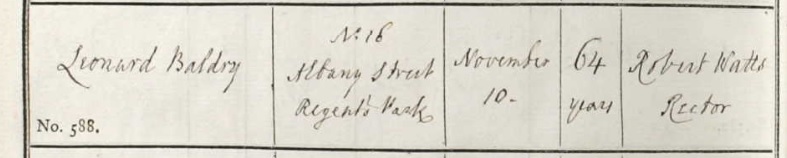 Leonard Baldry
No. 588.
No. 16
Albany Street
Regent's Park
November
10.
64
years
Robert Watts
Rector